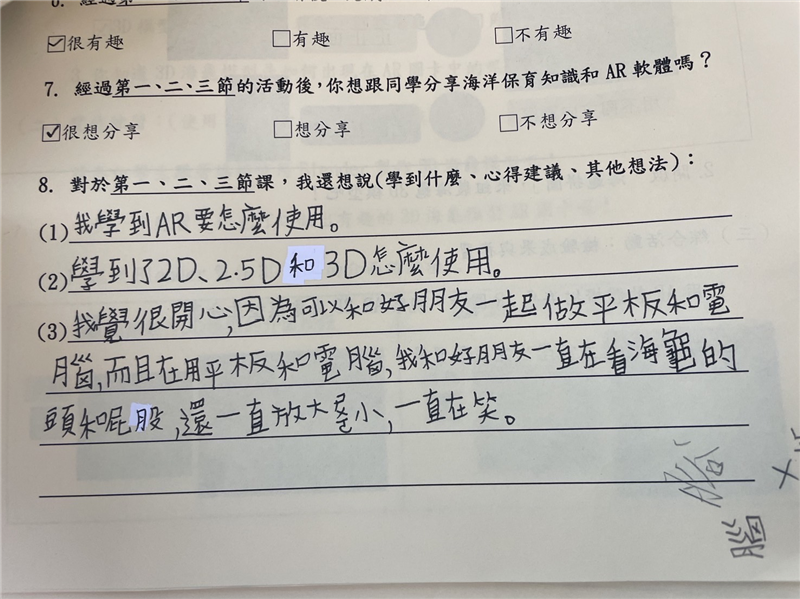 ☑很有趣 □有趣 □不有趣
7. 經過第一、二、三節的活動後,你想跟同學分享海洋保育知識和 AR 軟體嗎?
☑很想分享 □想分享 □不想分享
8. 對於第一、二、三節課,我還想說(學到什麼、心得建議、其他想法):
(1)我學到AR要怎麼使用。
(2)學到了2D、2.5D和3D怎麼使用。
(3)我覺很開心,因為可以和好朋友一起做平板和電
腦,而且在用平板和電腦,我和好朋友一直在看海龜的
頭和屁股,還一直放大縮小,一直在笑。
腦